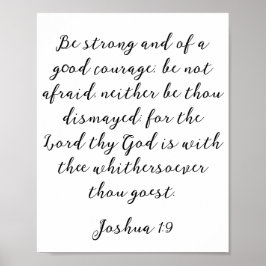 Be strong and of a
good courage; be not
afraid, neither be thou
dismayed: for the
Lord thy God is with
thee whithersoever
thou goest.
Joshua 1:9